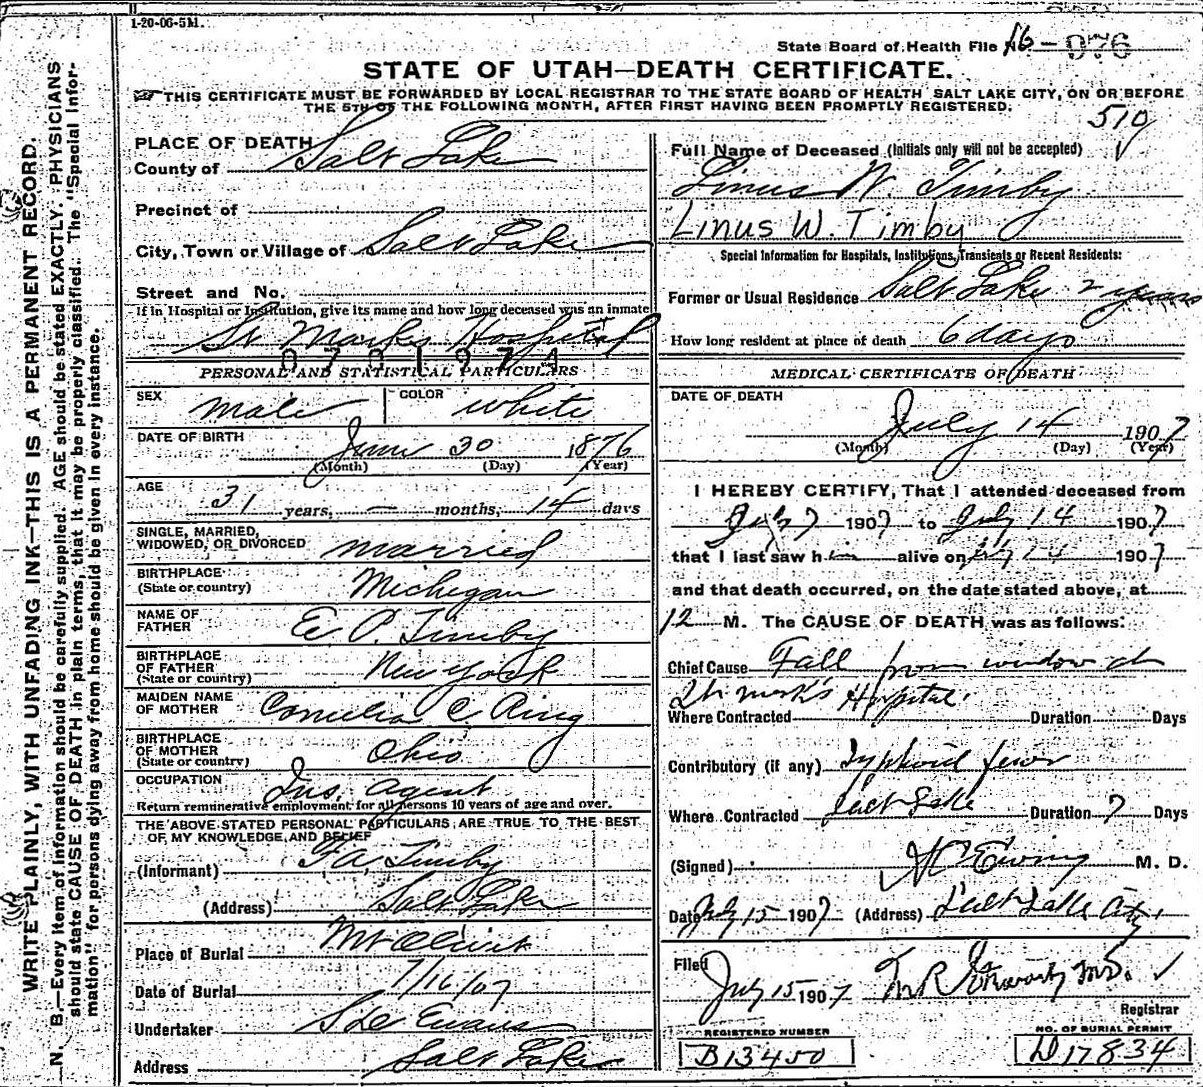 1-20-06-5M.
State Board of Health File No. 16-976
STATE OF UTAH—DEATH CERTIFICATE.
THIS CERTIFICATE MUST BE FORWARDED BY LOCAL REGISTRAR TO THE STATE BOARD OF HEALTH SALT LAKE CITY, ON OR BEFORE
THE 5TH OF THE FOLLOWING MONTH, AFTER FIRST HAVING BEEN PROMPTLY REGISTERED.
510
WRITE PLAINLY, WITH UNFADING INK—THIS IS A PERMANENT RECORD.
N. B.—Every item of information should be carefully supplied. AGE should be stated EXACTLY. PHYSICIANS
should state CAUSE OF DEATH in plain terms, that it may be properly classified. The "Special Infor-
mation" for persons dying away from home should be given in every instance.
PLACE OF DEATH
County of Salt Lake
Precinct of
City, Town or Village of Salt Lake
Street and No.
If in Hospital or Institution, give its name and how long deceased was an inmate
St Marks Hospital
0731974
PERSONAL AND STATISTICAL PARTICULARS
SEX male COLOR white
DATE OF BIRTH June 30 1876
(Month) (Day) (Year)
AGE
31 years, — months, 14 days
SINGLE, MARRIED,
WIDOWED, OR DIVORCED married
BIRTHPLACE
(State or country) Michegan
NAME OF
FATHER E P. Timby
BIRTHPLACE
OF FATHER
(State or country) New York
MAIDEN NAME
OF MOTHER Cornelia C. Ring
BIRTHPLACE
OF MOTHER
(State or country) Ohio
OCCUPATION Ins. Agent
Return remunerative employment for all persons 10 years of age and over.
THE ABOVE STATED PERSONAL PARTICULARS ARE TRUE TO THE BEST
OF MY KNOWLEDGE AND BELIEF
(Informant) F A Timby
(Address) Salt Lake
Place of Burial Mt Olivet
Date of Burial 7/16/07
Undertaker Evans
Address Salt Lake
Full Name of Deceased (Initials only will not be accepted)
Linus W. Timby
Linus W. Timby
Special Information for Hospitals, Institutions, Transients or Recent Residents:
Former or Usual Residence Salt Lake 2 years
How long resident at place of death 6 days
MEDICAL CERTIFICATE OF DEATH
DATE OF DEATH
July 14 1907
(Month) (Day) (Year)
I HEREBY CERTIFY, That I attended deceased from
July 7 1907 to July 14 1907
that I last saw him alive on July 14 1907
and that death occurred, on the date stated above, at
12 M. The CAUSE OF DEATH was as follows:
Chief Cause Fall from window at
St mark's Hospital.
Where Contracted Duration Days
Contributory (if any) Typhoid fever
Where Contracted Salt Lake Duration 7 Days
(Signed) Ewing M. D.
Date July 15 1907 (Address) Salt Lake City.
Filed July 15 1907 M.D.
Registrar
REGISTERED NUMBER
B13450
NO. OF BURIAL PERMIT
D17834